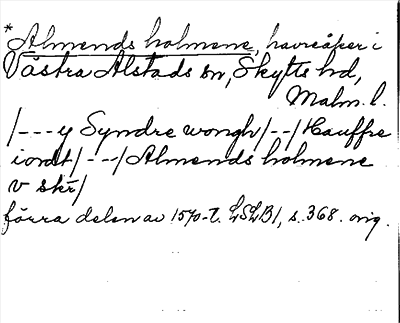 *Almends holmene, havreåker i
Västra Alstads sn, Skytts hd,
Malm. l.
/---y Syndre wongh/--/Hauffre
iordt/---/Almends holmene
v skr/
förra delen av 1570-t. LSLB1, s. 368. orig.